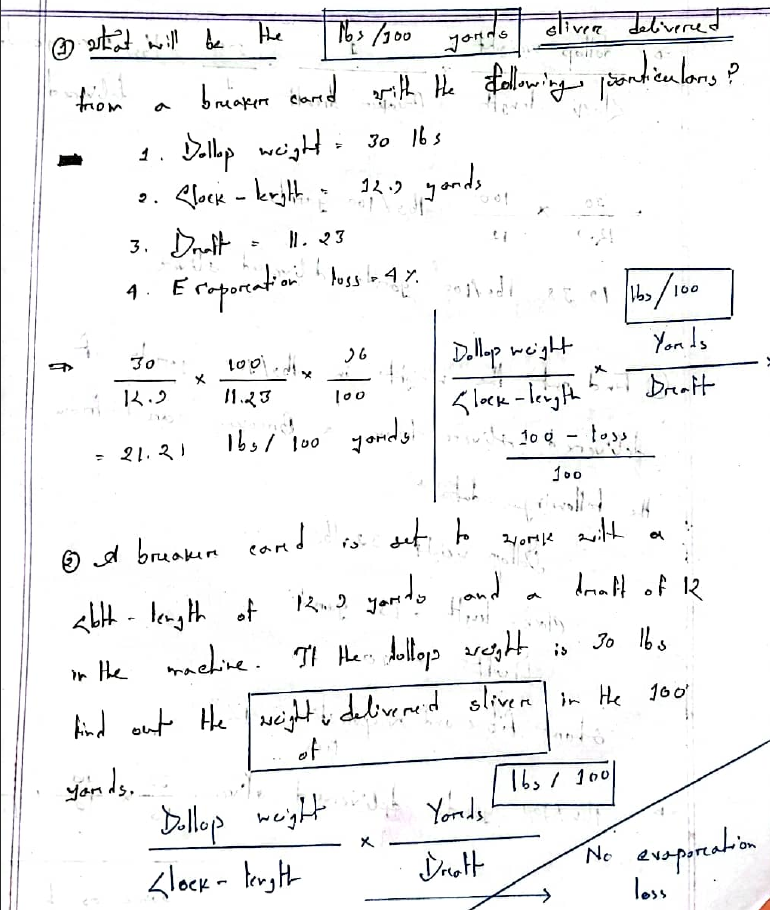 ① What will be the lbs/100 yards sliver delivered
from a breaker card with the following particulars?
1. Dollop weight = 30 lbs
2. Clock-length = 12.9 yards
3. Draft = 11.23
4. Evaporation loss = 4%.
⇒ 30/12.9 × 100/11.23 × 96/100
= 21.21 lbs/100 yards
lbs/100
Dollop weight/Clock-length × Yards/Draft ×
100 - loss/100
② A breaker card is set to work with a
clock-length of 12.9 yards and a draft of 12
in the machine. If the dollop weight is 30 lbs
find out the weight of delivered sliver in the 100
yards.
lbs / 100
Dollop weight/Clock-length × Yards/Draft
No evaporation
loss